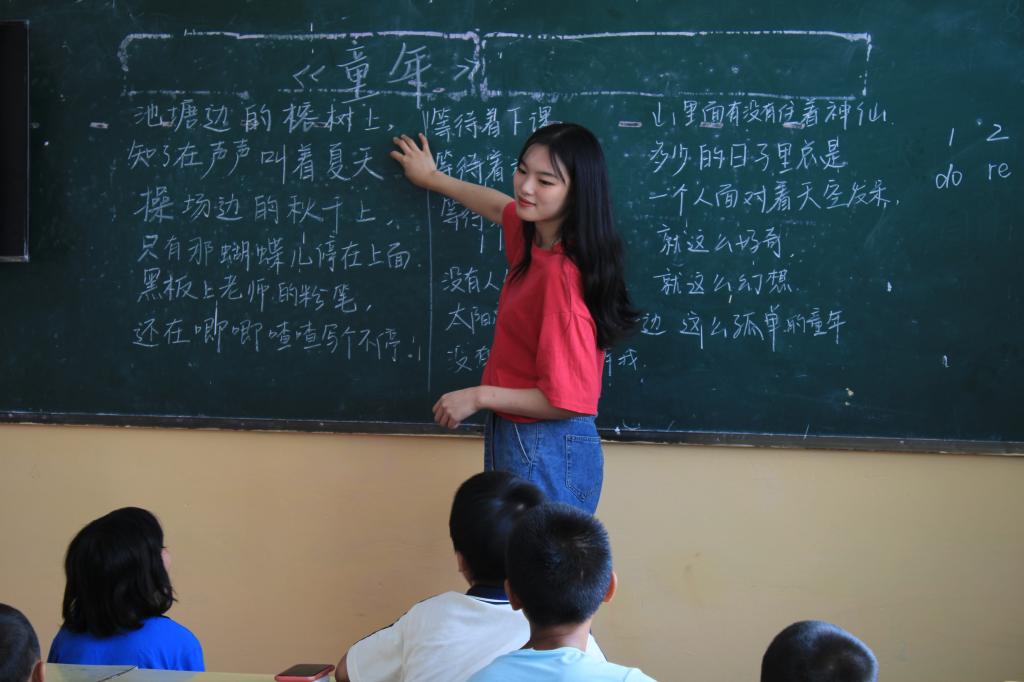 <<童年>>
池塘边的榕树上,
知了在声声叫着夏天
操场边的秋千上,
只有那蝴蝶儿停在上面
黑板上老师的粉笔,
还在唧唧喳喳写个不停.
等待着下课
等待着
等待
没有人
太阳 边
没有 我.
山里面有没有住着神仙.
多少的日子里总是
一个人面对着天空发呆,
就这么好奇,
就这么幻想.
这么孤单的童年
1 2
do re